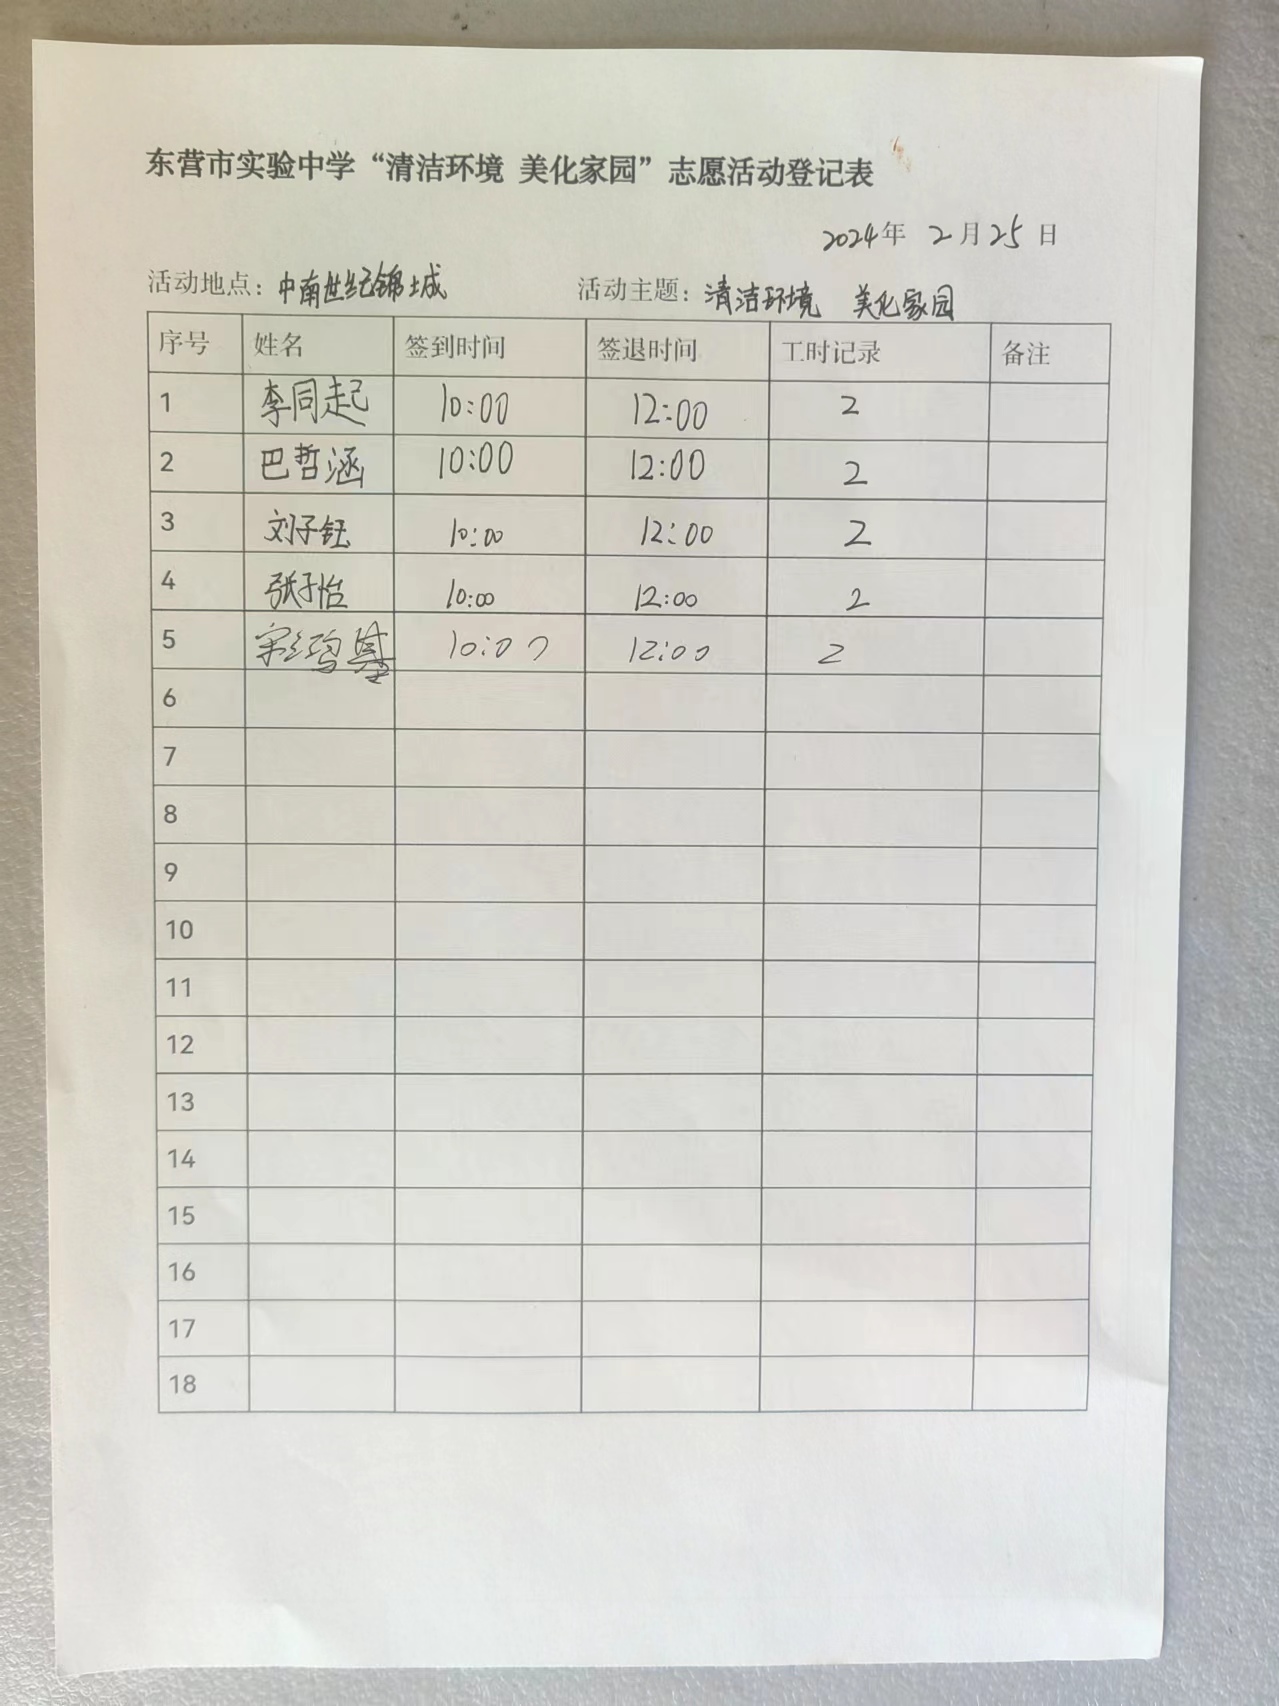 东营市实验中学“清洁环境 美化家园”志愿活动登记表
2024年 2月25日
活动地点：中南世纪锦城 活动主题：清洁环境 美化家园
序号 姓名 签到时间 签退时间 工时记录 备注
1 李同起 10:00 12:00 2
2 巴哲涵 10:00 12:00 2
3 刘子钰 10:00 12:00 2
4 张子怡 10:00 12:00 2
5 10:00 12:00 2
6
7
8
9
10
11
12
13
14
15
16
17
18